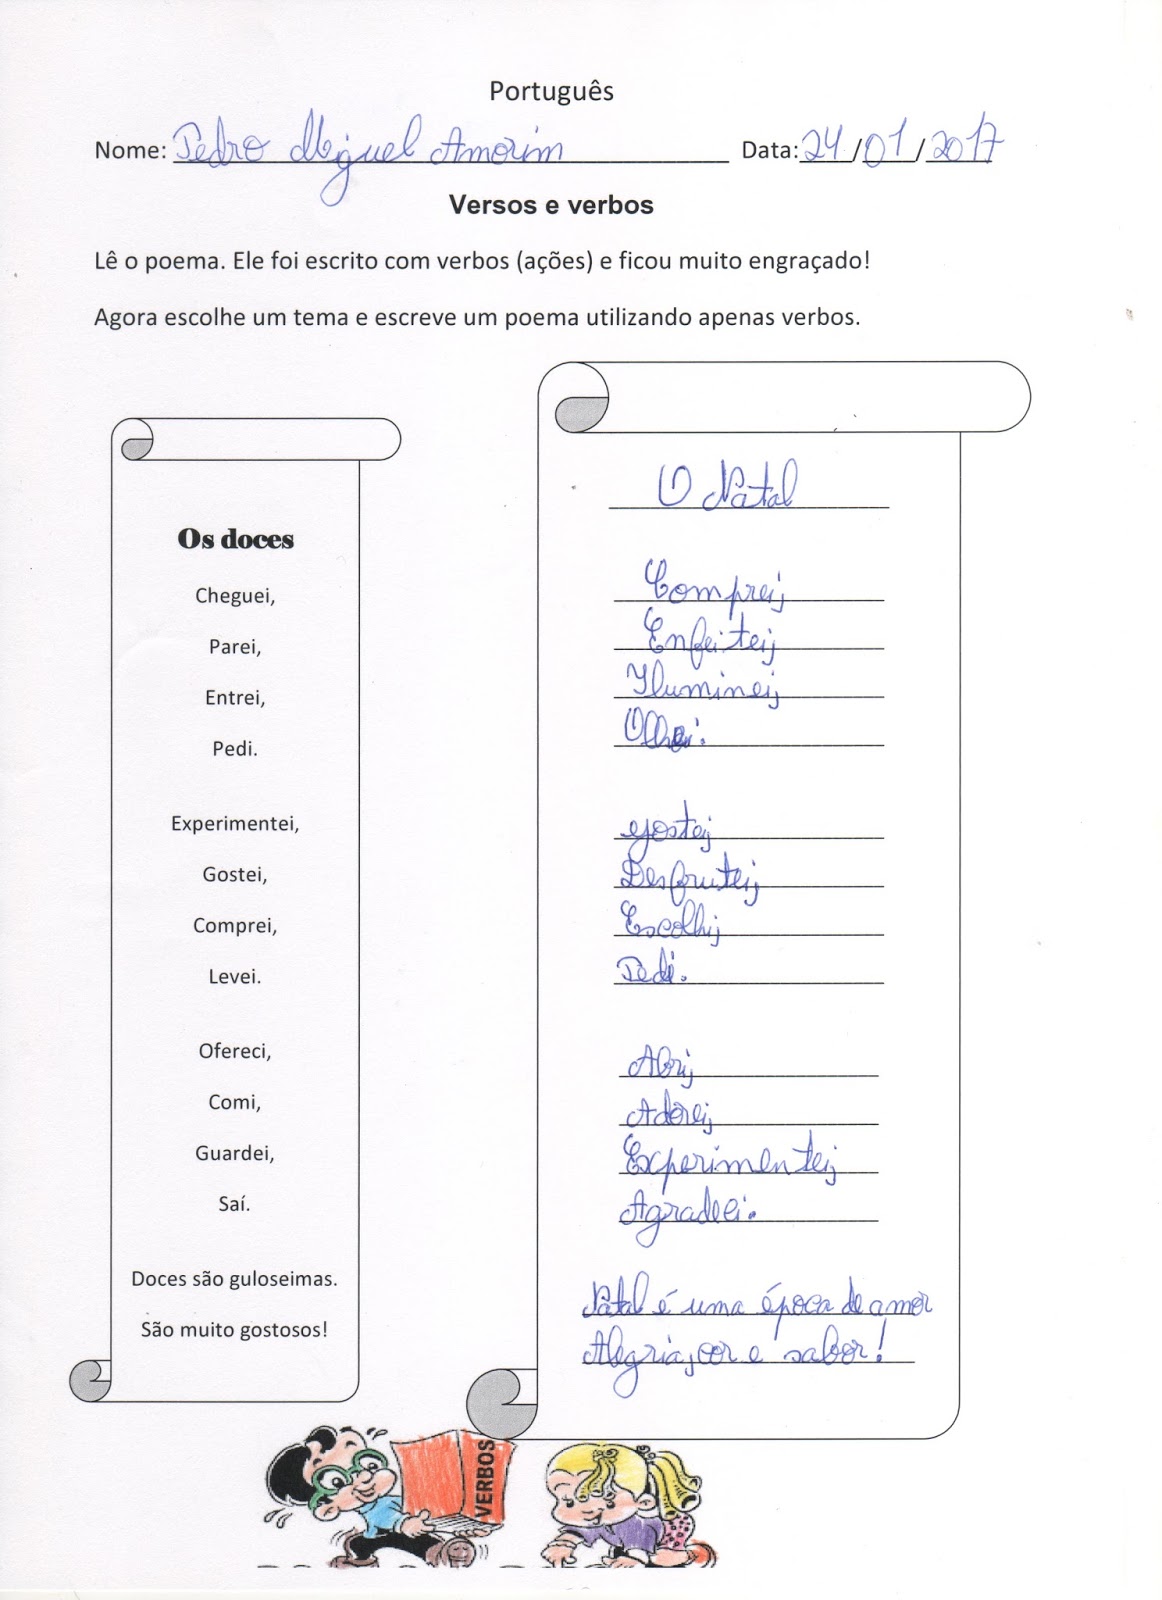 Português
Nome: Pedro Miguel Amorim Data: 24/01/2017
Versos e verbos
Lê o poema. Ele foi escrito com verbos (ações) e ficou muito engraçado!
Agora escolhe um tema e escreve um poema utilizando apenas verbos.
Os doces
Cheguei,
Parei,
Entrei,
Pedi.
Experimentei,
Gostei,
Comprei,
Levei.
Ofereci,
Comi,
Guardei,
Saí.
Doces são guloseimas.
São muito gostosos!
O Natal
Comprei,
Enfeitei,
Iluminei,
Olhei.
gostei,
Desfrutei,
Escolhi,
Pedi.
Abri,
Adorei,
Experimentei,
Agradeci.
Natal é uma época de amor
Alegria, cor e sabor!
VERBOS